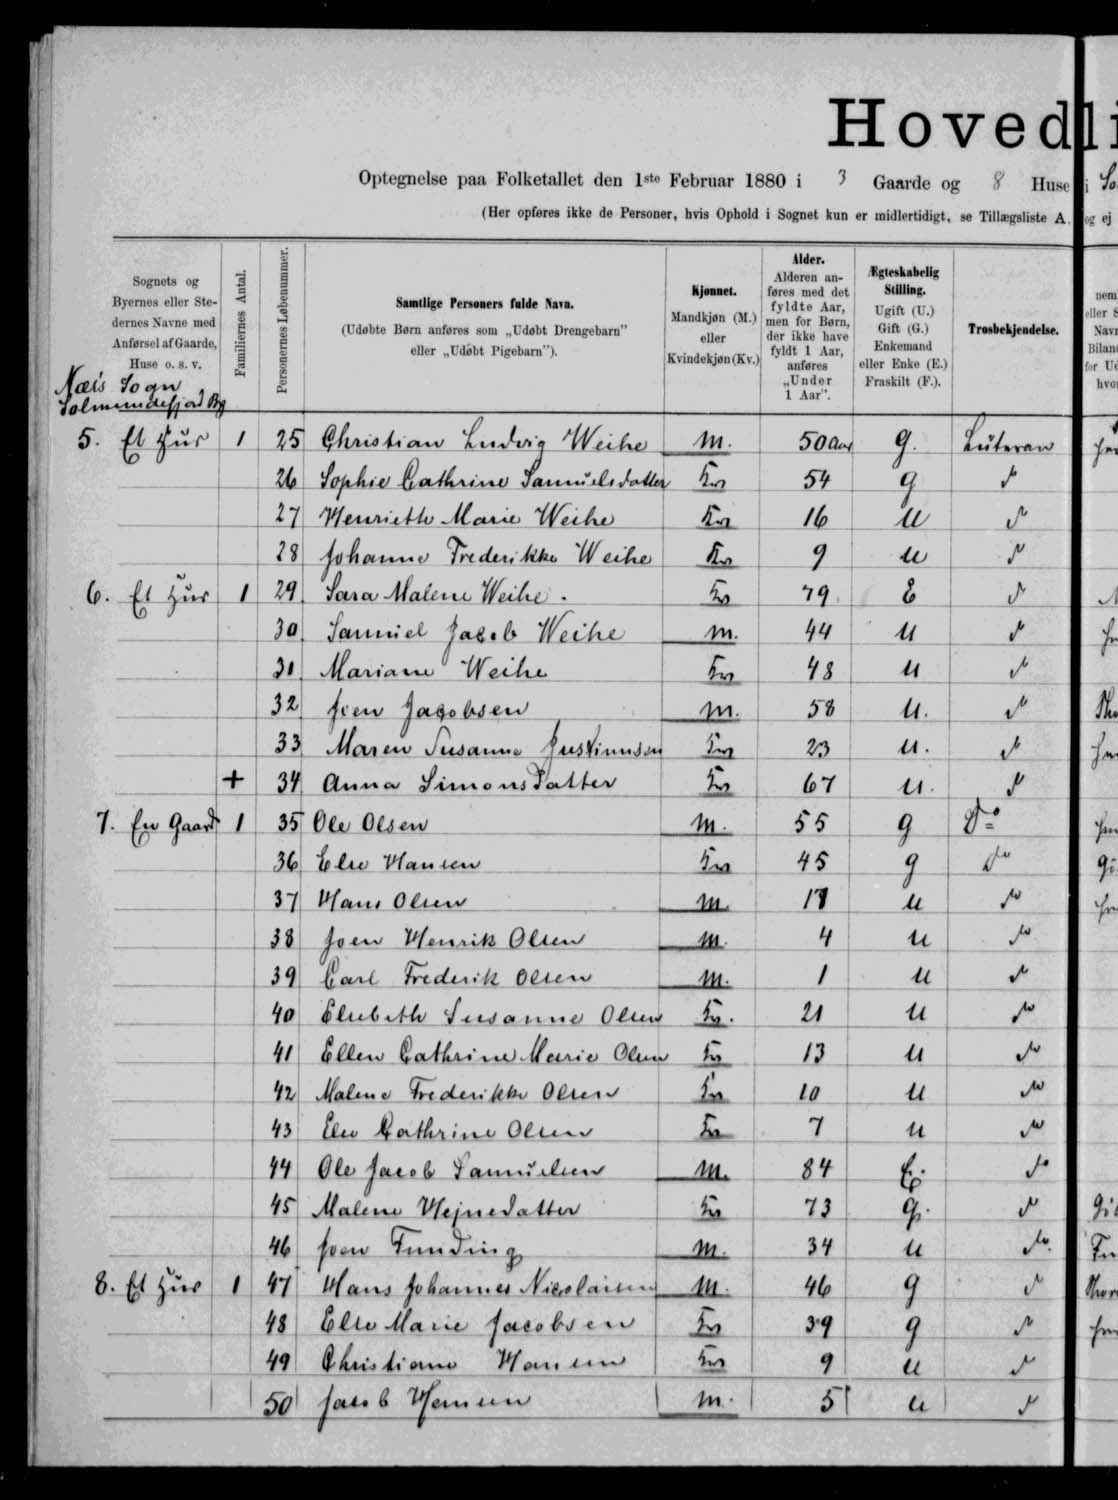 Hovedli
Optegnelse paa Folketallet den 1ste Februar 1880 i 3 Gaarde og 8 Huse i So
(Her opføres ikke de Personer, hvis Ophold i Sognet kun er midlertidigt, se Tillægsliste A. og ej
Sognets og Byernes eller Stedernes Navne med Anførsel af Gaarde, Huse o. s. v.
Familiernes Antal.
Personernes Løbenummer.
Samtlige Personers fulde Navn.
(Udøbte Børn anføres som „Udøbt Drengebarn" eller „Udøbt Pigebarn").
Kjønnet.
Mandkjøn (M.) eller Kvindekjøn (Kv.)
Alder.
Alderen anføres med det fyldte Aar, men for Børn, der ikke have fyldt 1 Aar, anføres „Under 1 Aar".
Ægteskabelig Stilling.
Ugift (U.) Gift (G.) Enkemand eller Enke (E.) Fraskilt (F.).
Trosbekjendelse.
Næs Sogn
Solmundefjord Byg
5. Et Hus 1 25 Christian Ludvig Weihe M. 50 Aar g. Luteran
26 Sophie Cathrine Samuelsdatter Kv 54 g do
27 Henriette Marie Weihe Kv 16 U do
28 Johanne Frederikke Weihe Kv 9 U do
6. Et Hus 1 29 Sara Malene Weihe. Kv 79 E do
30 Samuel Jacob Weihe M. 44 U do
31 Mariane Weihe Kv 48 U do
32 Joen Jacobsen M. 58 U. do
33 Maren Susanne Justinussen Kv 23 U. do
+ 34 Anna Simonsdatter Kv 67 U. do
7. En Gaard 1 35 Ole Olsen M. 55 g Do
36 Else Hansen Kv 45 g do
37 Hans Olsen M U do
38 Joen Henrik Olsen M. 4 U do
39 Carl Frederik Olsen M. 1 U do
40 Elsebeth Susanne Olsen Kv. 21 U do
41 Ellen Cathrine Marie Olsen Kv 13 U do
42 Malene Frederikke Olsen Kv 10 U do
43 Else Cathrine Olsen Kv 7 U do
44 Ole Jacob Samuelsen M. 84 do
45 Malene Hejnedatter Kv 73 g. do
46 Joen Funding M. 34 U do.
8. Et Hus 1 47 Hans Johannes Nicolaisen M. 46 g do
48 Else Marie Jacobsen Kv 39 g do
49 Christiane Hansen Kv 9 U do
50 Jacob Hansen M. 5 U do